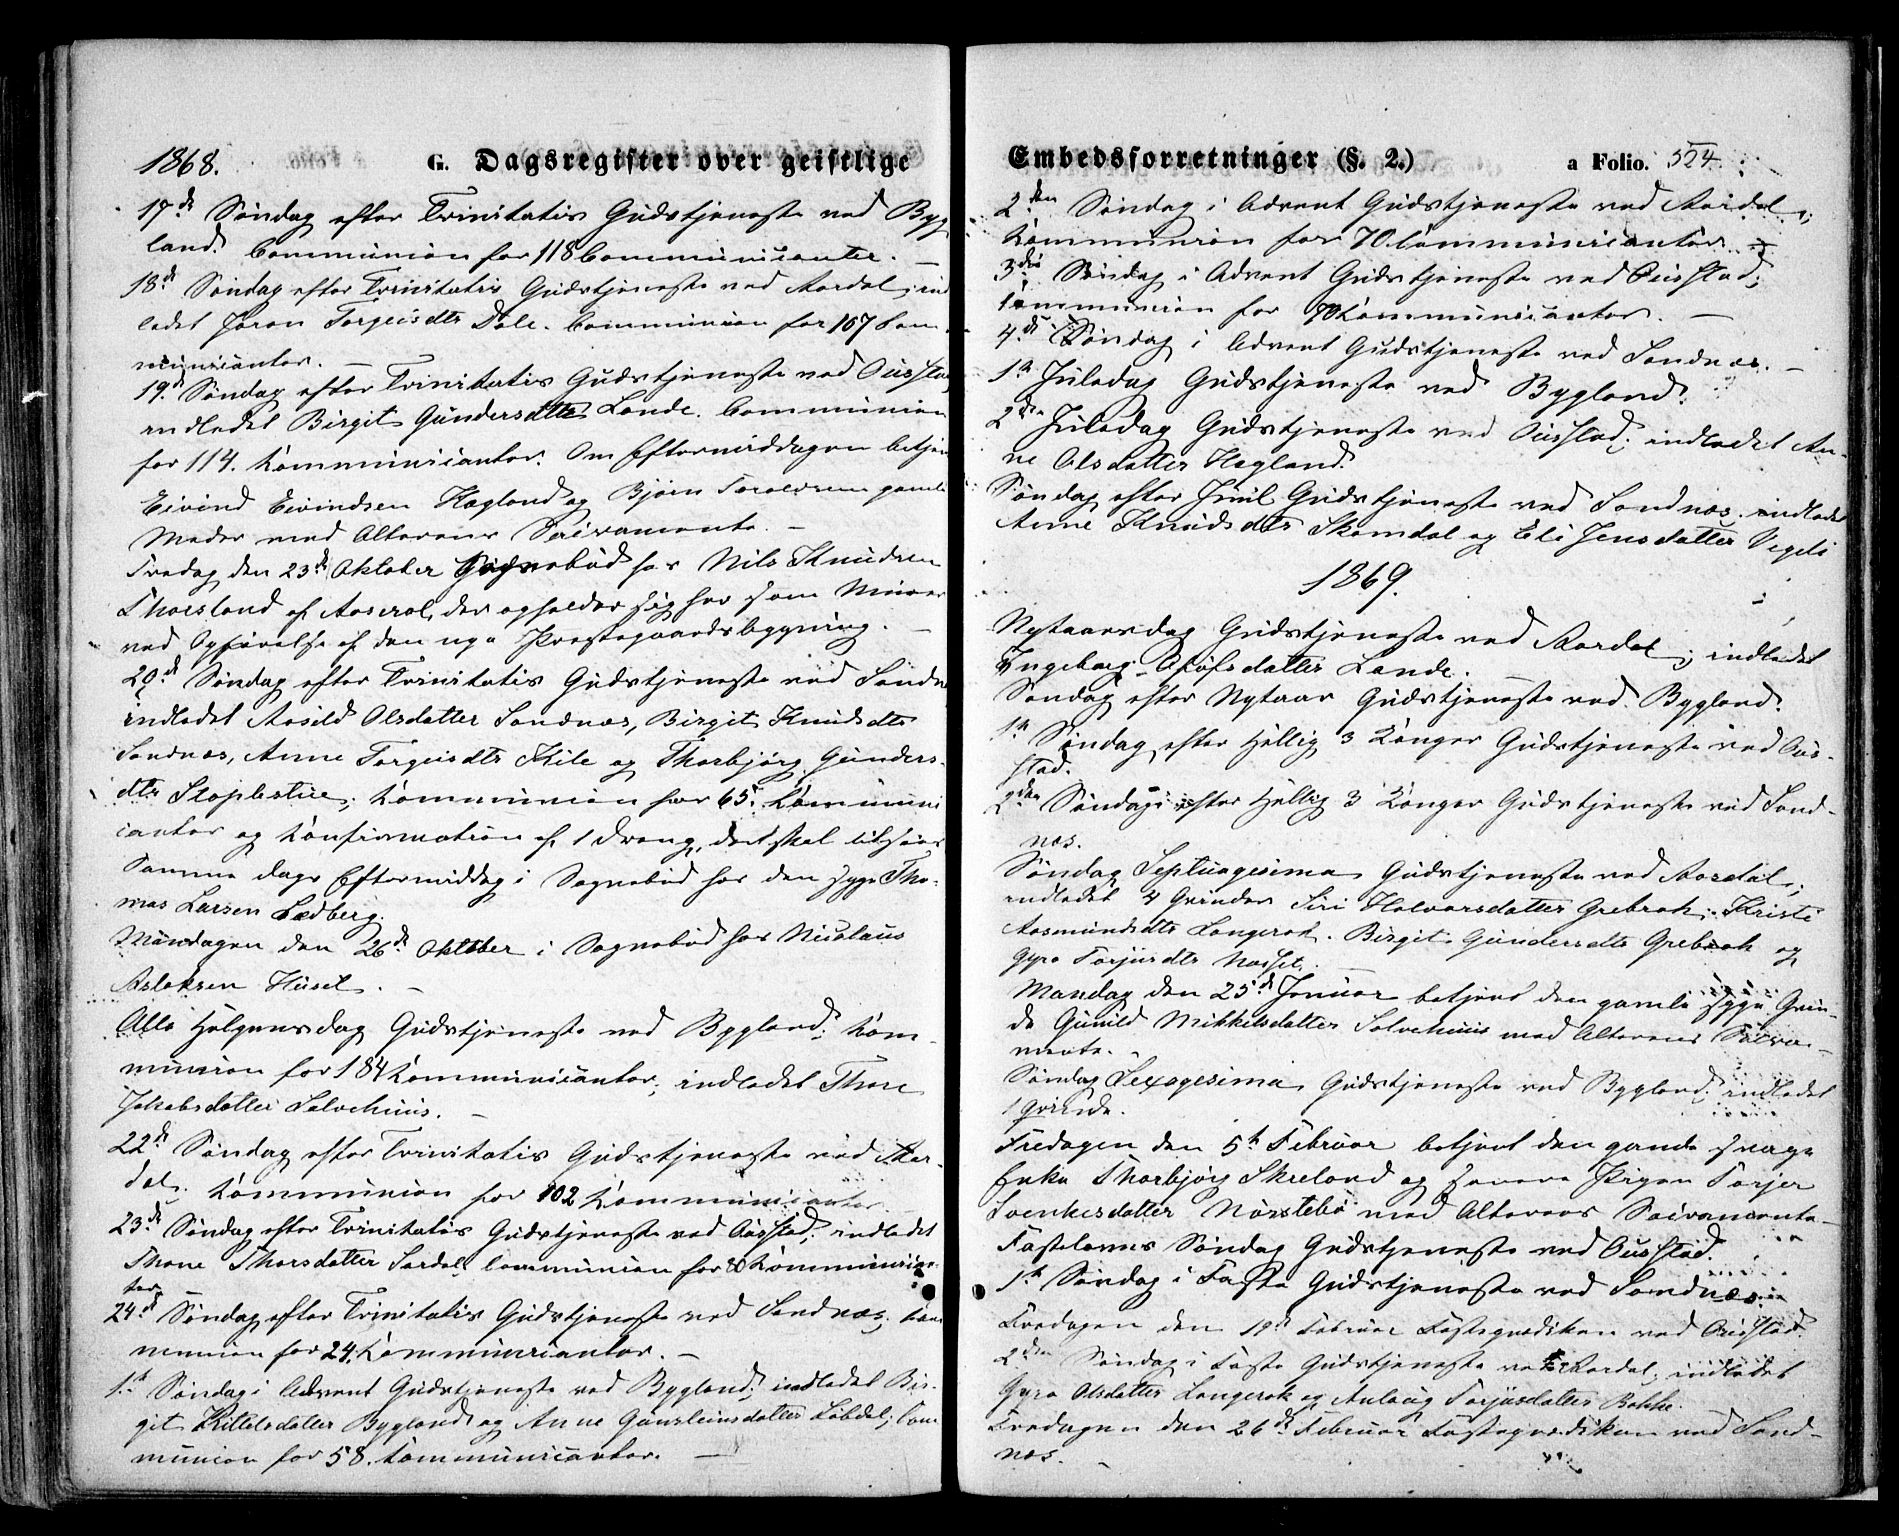 1868. G. Dagsregister over geistlige
17de Søndag efter Trinitatis Gudstjeneste ved Byg
land. Communion for 118 Communicanter. —
18de Søndag efter Trinitatis Gudstjeneste ved Aardal, ind
ledet Joran Torgeisdtr Dale. Communion for 107 Com
municanter. —
19. Søndag efter Trinitatis Gudstjeneste ved Ousstad
indledet Birgit Gundersdatter Lande. Communion
for 114. Kommunicanter. Om Eftermiddagen betjen
Eivind Eivindsen Hagland og Bjørn gamle
Moder med Alterens Sacramente. —
Fredag den 23de Oktober Sognebud hos Nils Knudsen
Thorsland af Aaseral, der opholder sig her som Murer
ved Opførelse af den nye Præstegaardsbygning. —
20de Søndag efter Trinitatis Gudstjeneste ved Sandn
indledet Aasild Olsdatter Sandnæs, Birgit Knudsdtr
Sandnæs, Anne Torgeisdtr Kile og Thorbjørg Gunders-
dtr Stoplestue; Kommunion for 65. Kommuni
canter og Konfirmation af 1 Dreng,
Samme dags Eftermiddag i Sognebud hos den syge Tho-
mas Larsen Sædberg.
Mandagen den 26de Oktober i Sognebud hos Nicolaus
Aslaksen Huset. —
Alle Helgensdag Gudstjeneste ved Bygland. Kom-
munion for 184 Kommunicanter, indledet Thore
Jakobsdatter Salvehuus. —
22de Søndag efter Trinitatis Gudstjeneste ved Aar-
dal. Kommunion for 102 Kommunicanter.
23de Søndag efter Trinitatis Gudstjeneste ved Ousstad, indledet
Thone Thorsdatter Communion for 80 Kommunican-
ter.
24de Søndag efter Trinitatis Gudstjeneste ved Sandnæs, Kom
munion for 24. Kommunicanter. —
1ste Søndag i Advent Gudstjeneste ved Bygland, indledet Bir-
git Kittelsdatter Bygland og Anne Gunsteinsdatter Com
munion for 58. Kommunicanter. —
Embedsforretninger (§. 2.) a Folio. 524.
2den Søndag i Advent Gudstjeneste ved Aardal,
Kommunion for 70 Communicanter.
3die Søndag i Advent Gudstjeneste ved Ousstad,
Communion for 70 Kommunicanter. —
4de Søndag i Advent Gudstjeneste ved Sandnæs. —
1ste Juledag Gudstjeneste ved Bygland.
2den Juledag Gudstjeneste ved Ousstad, indledet An-
ne Olsdatter Hagland.
Søndag efter Juul Gudstjeneste ved Sandnæs, indledet
Anne Knudsdtr Skomdal og Eli Jensdatter
1869.
Nytaarsdag Gudstjeneste ved Aardal; indledet
Ingeborg Olsdatter Lande. —
Søndag efter Nytaar Gudstjeneste ved Bygland.
1ste Søndag efter Hellig 3 Konger Gudstjeneste ved Ous-
stad.
2den Søndag efter Hellig 3 Konger Gudstjeneste ved Sand-
næs.
Søndag Septuagesima Gudstjeneste ved Aardal,
indledet 4 Qvinder Siri Halvorsdatter Grebrok, Kristi
Aasmundsdtr Langerak. Birgit Gundersdtr Grebrok og
Gyro Torjusdtr
Mandag den 25de Januar betjent den gamle syge Qvin-
de Gunild Mikkelsdatter Salvehuus med Alterens Sacra-
mente. —
Søndag Sexagesima, Gudstjeneste ved Bygland, indledet
1 Qvinde.
Fredagen den 5te Februar betjent den gamle svage
Enke Thorbjørg Skreland og Pigen Torjer
Svenkesdatter Nørstebø med Alterens Sacramente —
Fastelavns Søndag Gudstjeneste ved Ousstad.
1ste Søndag i Faste Gudstjeneste ved Sandnæs.
Fredagen den 19de Februar Fasteprædiken ved Ousstad.
2den Søndag i Faste Gudstjeneste ved Aardal, indledet
Gyro Olsdatter Langerak og Anlaug Torjusdatter Bakke.
Fredagen den 26de Februar Fasteprædiken ved Sand-
næs. —